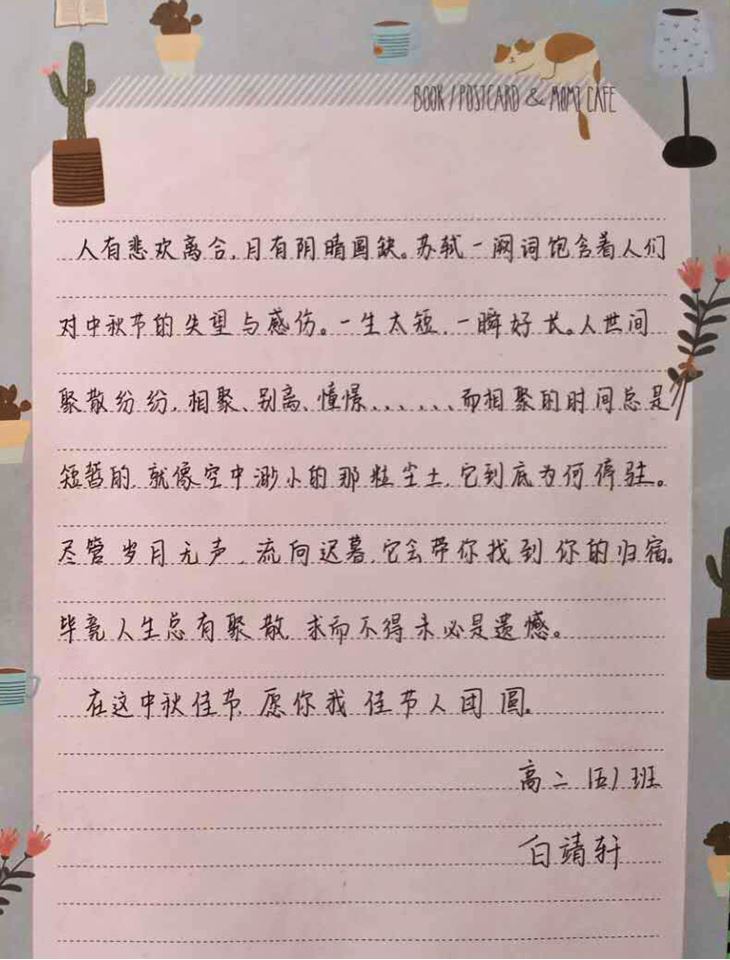 BOOK / POSTCARD & MOMI CAFE
人有悲欢离合,月有阴晴圆缺。苏轼一阙词饱含着人们
对中秋节的失望与感伤。一生太短,一瞬好长。人世间
聚散纷纷,相聚、别离、憧憬、、、、、、而相聚的时间总是
短暂的,就像空中渺小的那粒尘土,它到底为何停驻。
尽管岁月无声,流向迟暮,它会带你找到你的归宿。
毕竟人生总有聚散,求而不得未必是遗憾。
在这中秋佳节,愿你我佳节人团圆。
高二(五)班
白靖轩